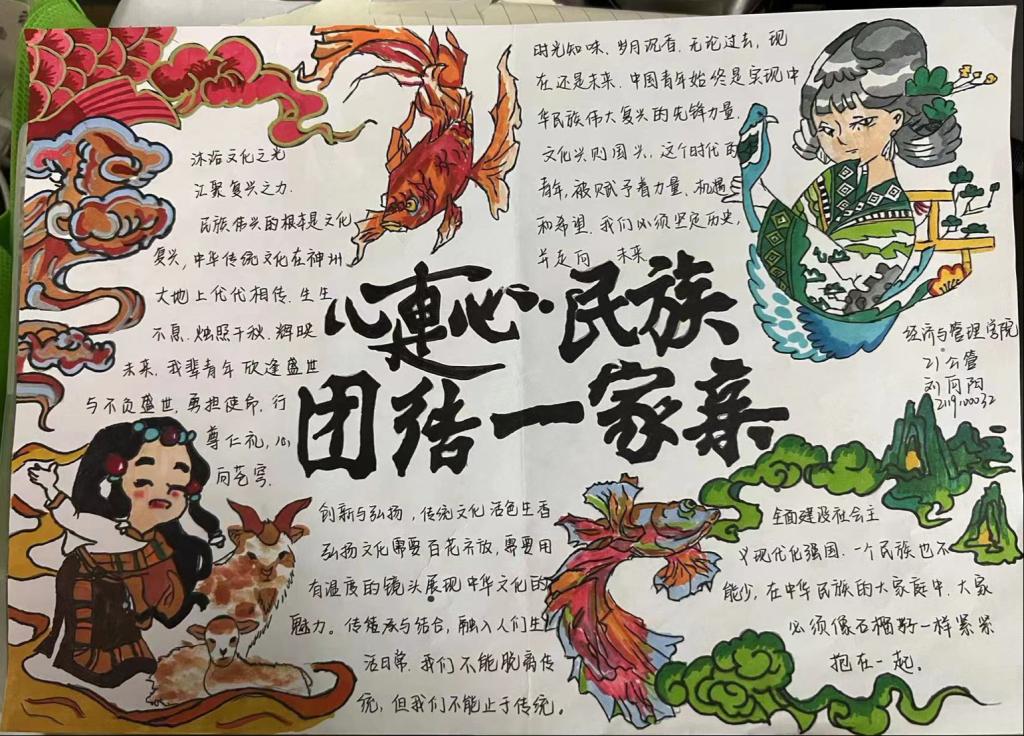 沐浴文化之光
汇聚复兴之力.
民族伟兴的根本是文化
复兴,中华传统文化在神州
大地上代代相传.生生
不息.烛照千秋.辉映
未来.我辈青年欣逢盛世
与不负盛世.勇担使命.行
尊仁礼,心
向苍穹.
时光知味、岁月沉香.无论过去,现
在还是未来.中国青年始终是实现中
华民族伟大复兴的先锋力量.
文化兴则国兴.这个时代的
青年,被赋予着力量、机遇
和希望.我们必须坚定历史,
并走向 未来.
心連心·民族
团结一家亲
经济与管理学院
21公管
刘向阳
2119100032
创新与弘扬,传统文化活色生香
弘扬文化需要百花齐放,需要用
有温度的镜头展现中华文化的
魅力。传播承与结合,融入人们生
活日常.我们不能脱离传
统,但我们不能止于传统。
全面建设社会主
义现代化强国.一个民族也不
能少,在中华民族的大家庭中.大家
必须像石榴籽一样紧紧
抱在一起。